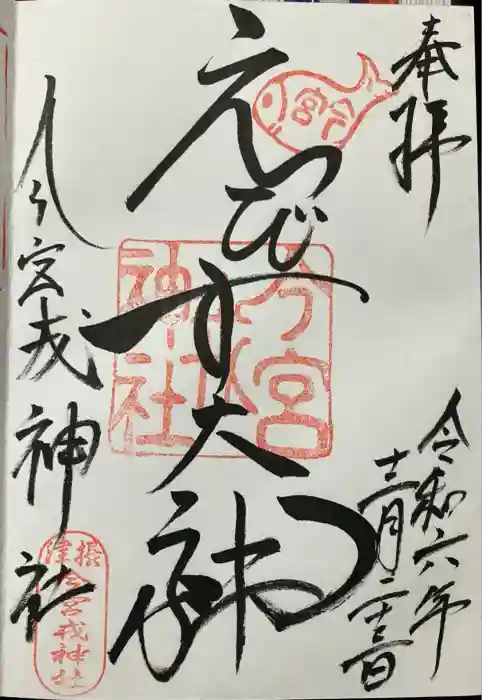 奉拝
令和六年
十二月二十三日
今宮
えびす大神
今宮
神社
今宮戎神社
攝津
今宮戎神社